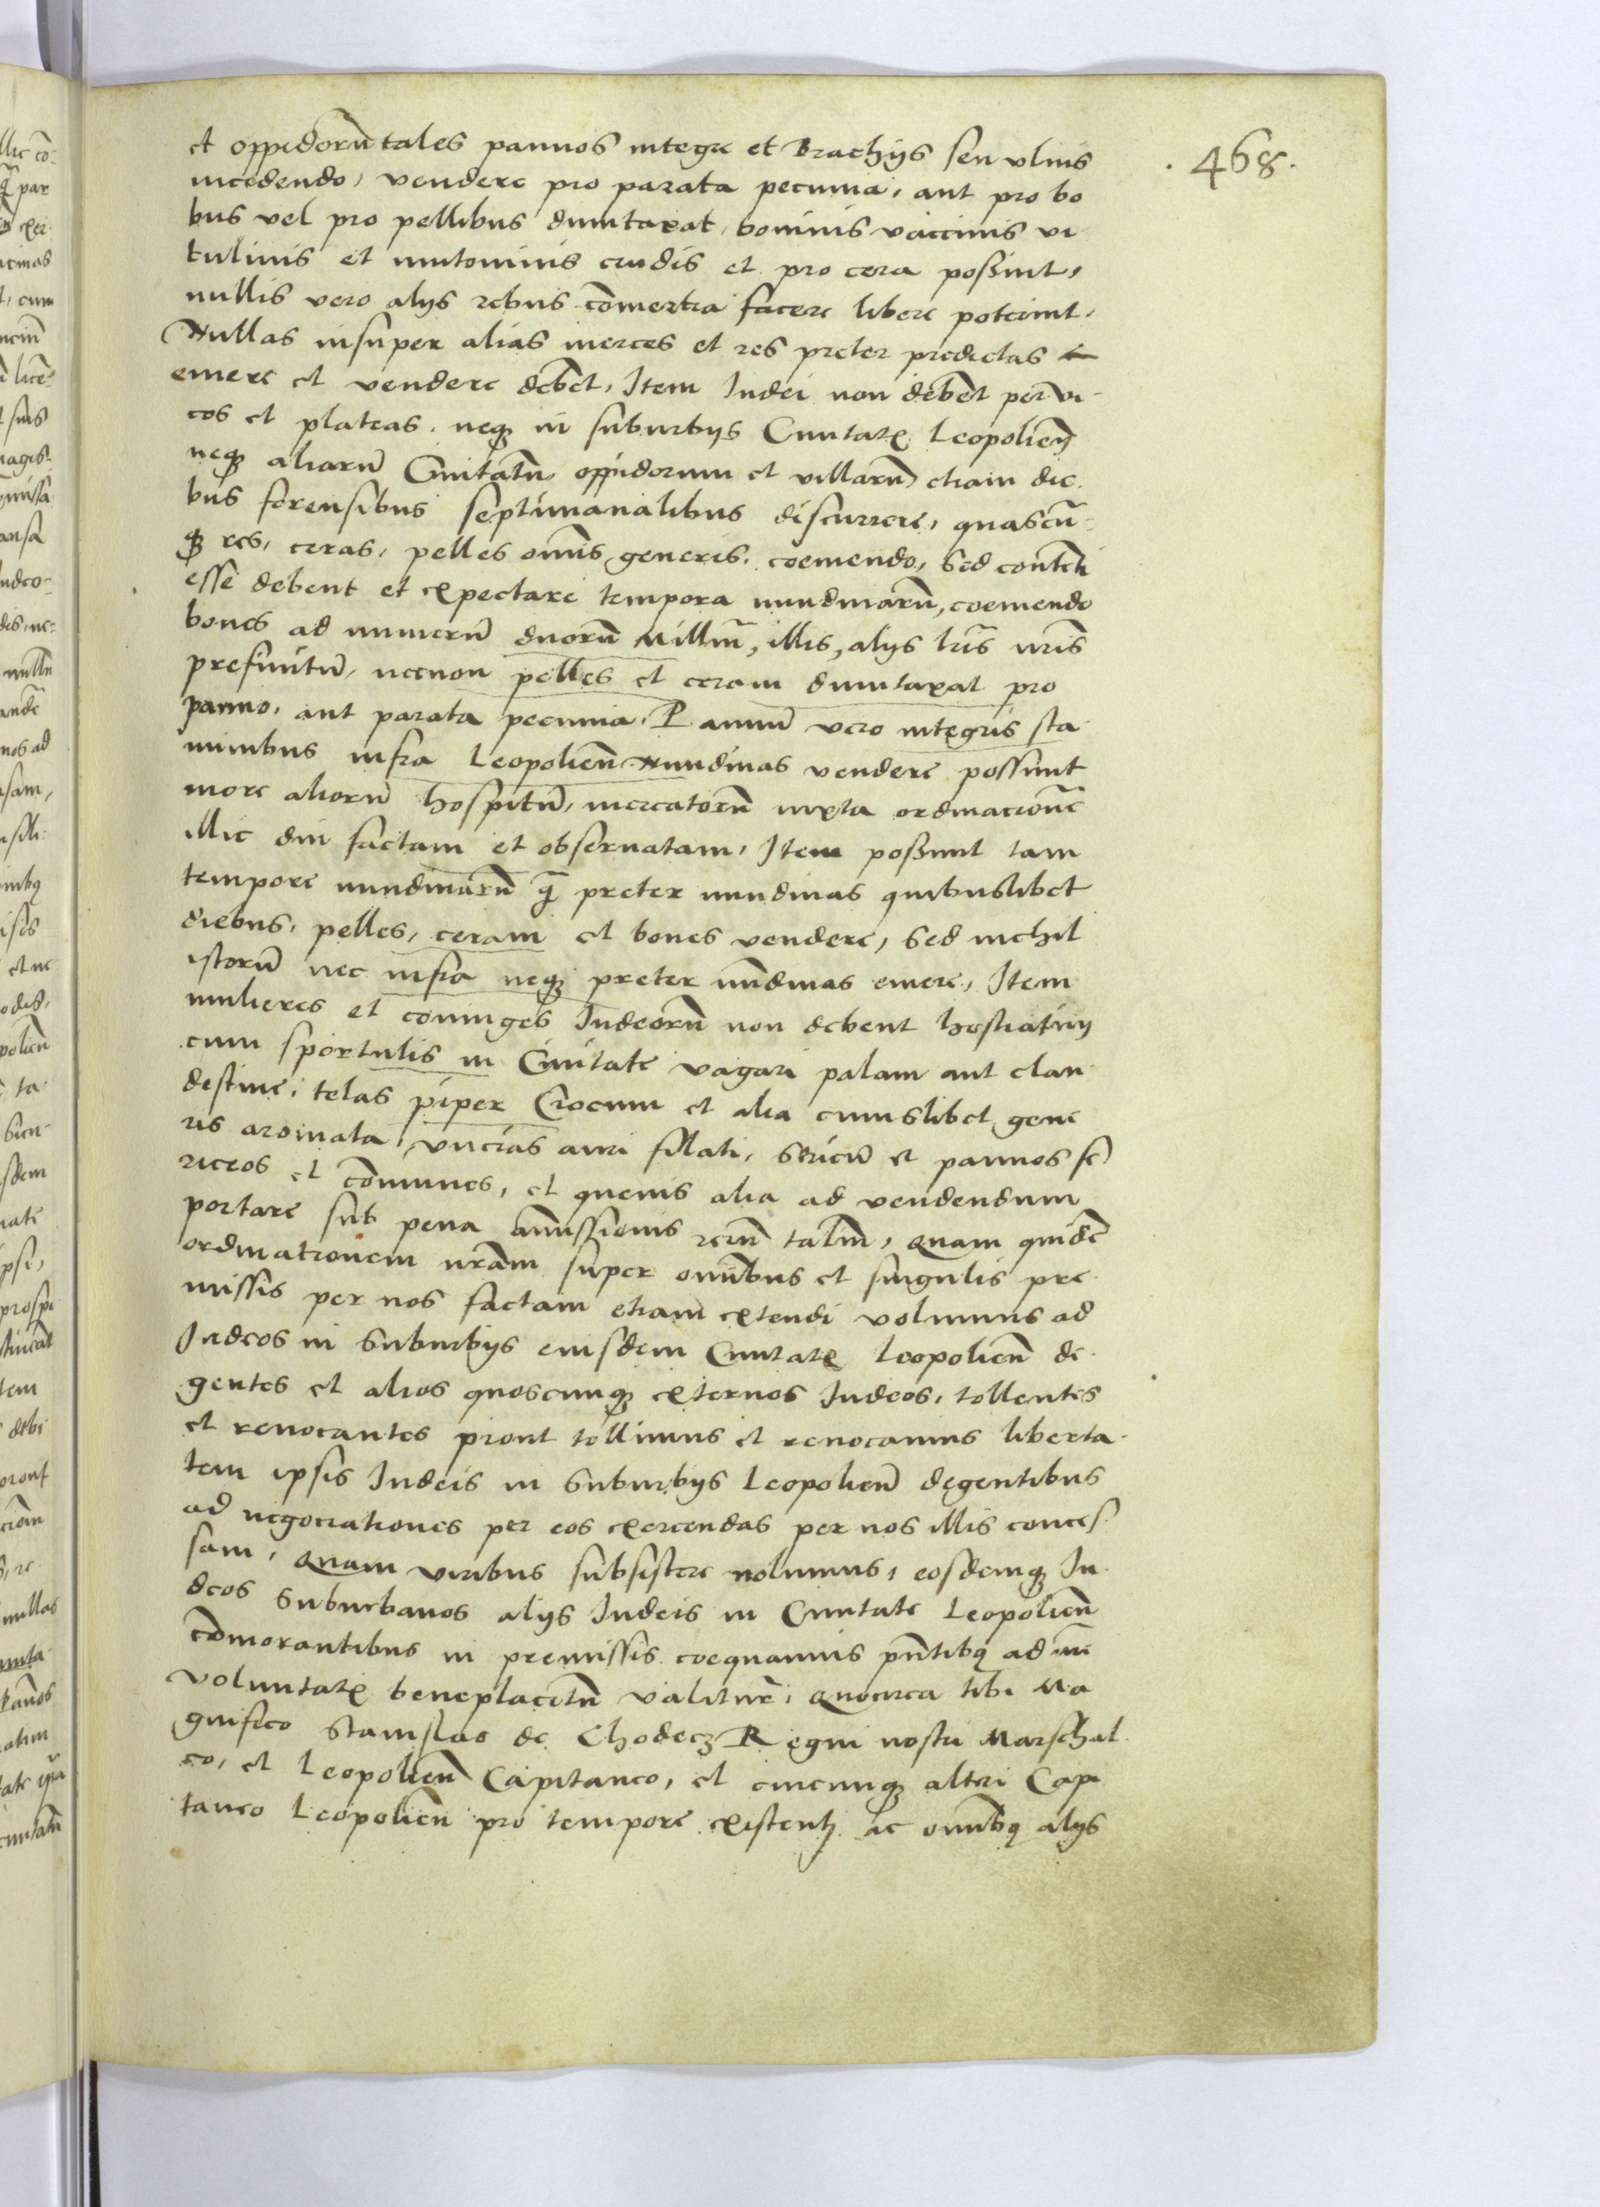 .468.
et oppidorū tales pannos integre et Brachijs seu ulnis
incedendo, vendere pro parata pecunia, aut pro bo
bus vel pro pellibus dumtaxat, bovinis vaccinis vi
tulinis et mutoninis crudis et pro cera possint,
nullis vero alijs rebus cōmertia facere libere poterint,
Nullas insuper alias merces et res preter predictas
emere et vendere debēt, Item Iudei non debēt per vi-
cos et plateas, neq₃ in suburbijs Civitatꝭ Leopolień
neq₃ aliarū Civitatū, oppidorum et villarū, etiam die-
bus forensibus septimanalibus discurrere, quascū-
q₃ res, ceras, pelles omīs generis, coemendo, Sed contēti
esse debent et expectare tempora nundinarū, coemendo
boves ad numerū duorū Milliū, illis, alijs lrīs nrīs
prefinitū, necnon pelles et ceram dumtaxat pro
panno, aut parata pecunia, Pannū vero integris sta
minibus infra Leopolień Nundinas vendere possunt
more aliorū hospitū, mercatorū iuxta ordinacionē
illic diu factam et observatam, Item possunt tam
tempore nundinarū q̄ preter nundinas quibuslibet
diebus, pelles, ceram et boves vendere, Sed nichil
istorū nec infra neq₃ preter nūdinas emere, Item
mulieres et coniuges Iudeorū non debent hostiatim
cum sportulis in Civitate vagari palam aut clan
destine, telas piper Crocum et alia cuiuslibet gene
ris aromata, uncias auri filati, Sericū et pannos se
riceos et cōmunes, et quevis alia ad vendendum
portare sub pena āmissionis rerū taliū, Quam quidē
ordinationem nrām super omībus et singulis pre
missis per nos factam etiam extendi volumus ad
Iudeos in Suburbijs eiusdem Civitatꝭ Leopolień de-
gentes et alios quoscunq₃ externos Iudeos, tollentes
et revocantes prout tollimus et revocamus liberta-
tem ipsis Iudeis in Suburbijs Leopolień degentibus
ad negociationes per eos exercendas per nos illis conces-
sam, Quam viribus subsistere nolumus, eosdemq₃ Iu-
deos Suburbanos alijs Iudeis in Civitate Leopolień
cōmorantibus in premissis coequamus pn̄tibꝯ ad nr̄e
voluntatꝭ beneplacitū valiturꝭ, Quocirca tibi Ma
gnifico Stanislao de Chodecz Regni nostri Marschal-
co, et Leopolień Capitaneo, et cuicunq₃ alteri Capi
taneo Leopolień pro tempore existenti ac omībꝯ alijs